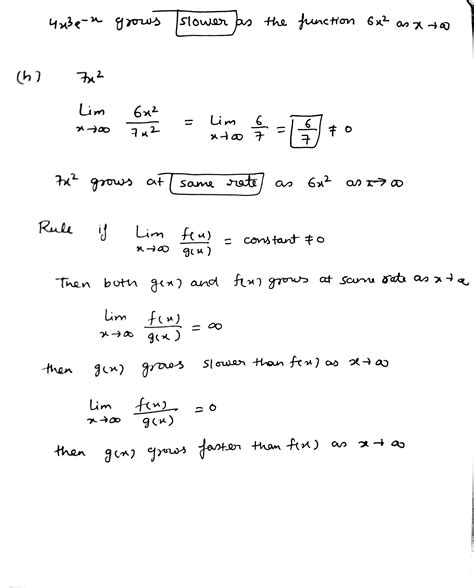 4x³e⁻ˣ grows slower as the function 6x² as x→∞
(h) 7x²
Lim x→∞ 6x²/7x² = Lim x→∞ 6/7 = 6/7 ≠ 0
7x² grows at same rate as 6x² as x→∞
Rule if Lim x→∞ f(x)/g(x) = constant ≠0
Then both g(x) and f(x) grows at same rate as x→∞
Lim x→∞ f(x)/g(x) = ∞
then g(x) grows slower than f(x) as x→∞
Lim x→∞ f(x)/g(x) = 0
then g(x) grows faster than f(x) as x→∞